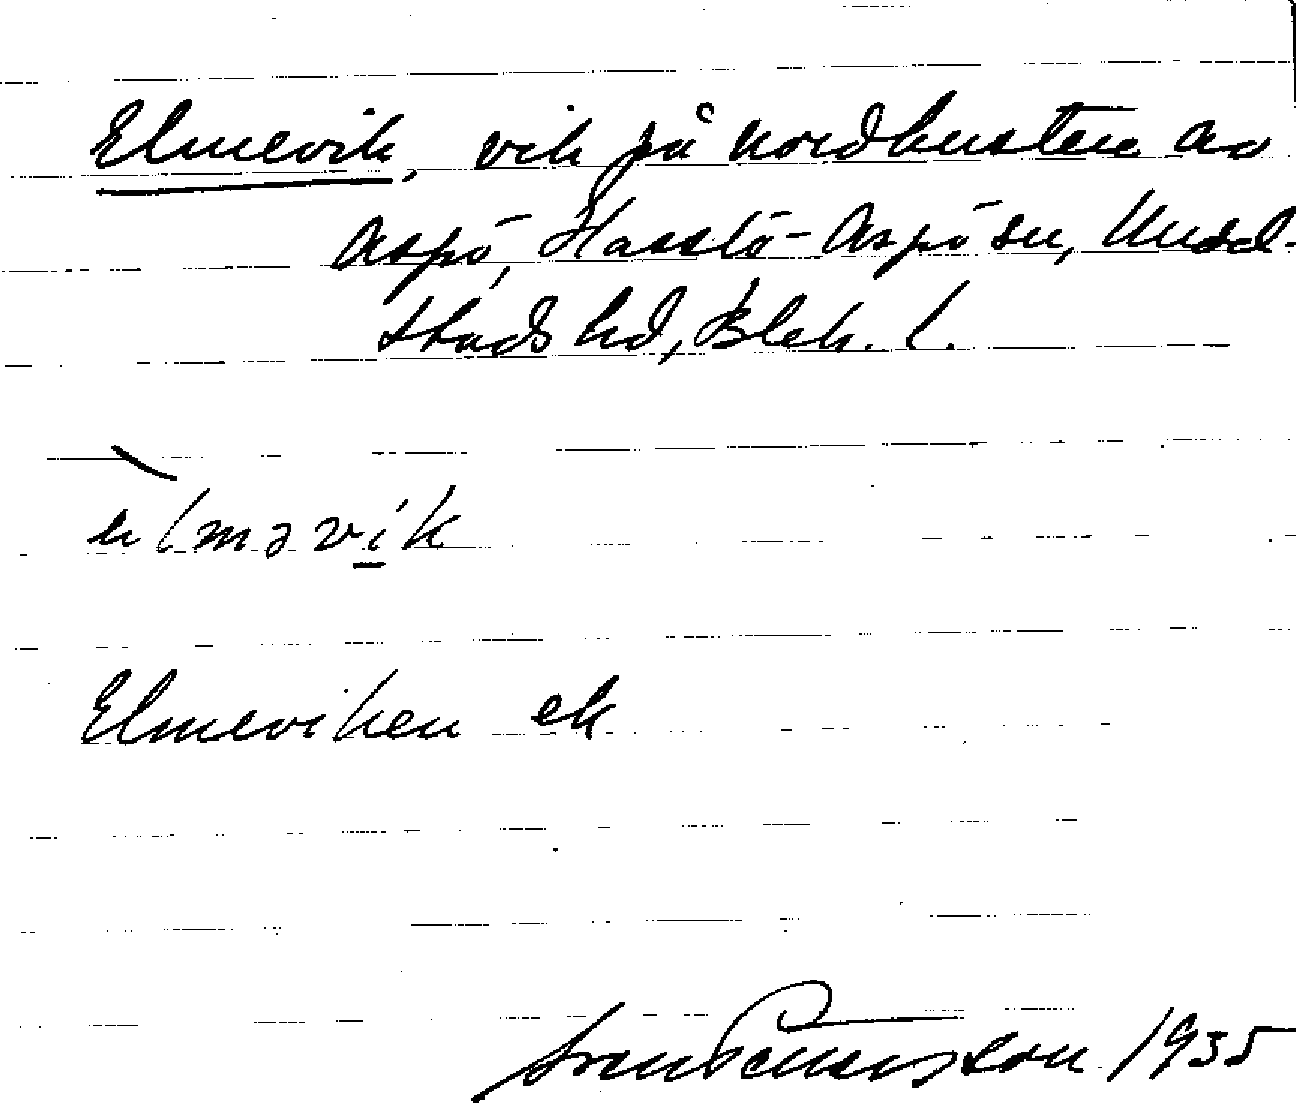 Elmevik, vik på nordkusten av
Aspö, Hasslö-Aspö sn, Medel-
stads hd, Blek. l.
elməvik
Elmeviken ek
Sven Pettersson 1935